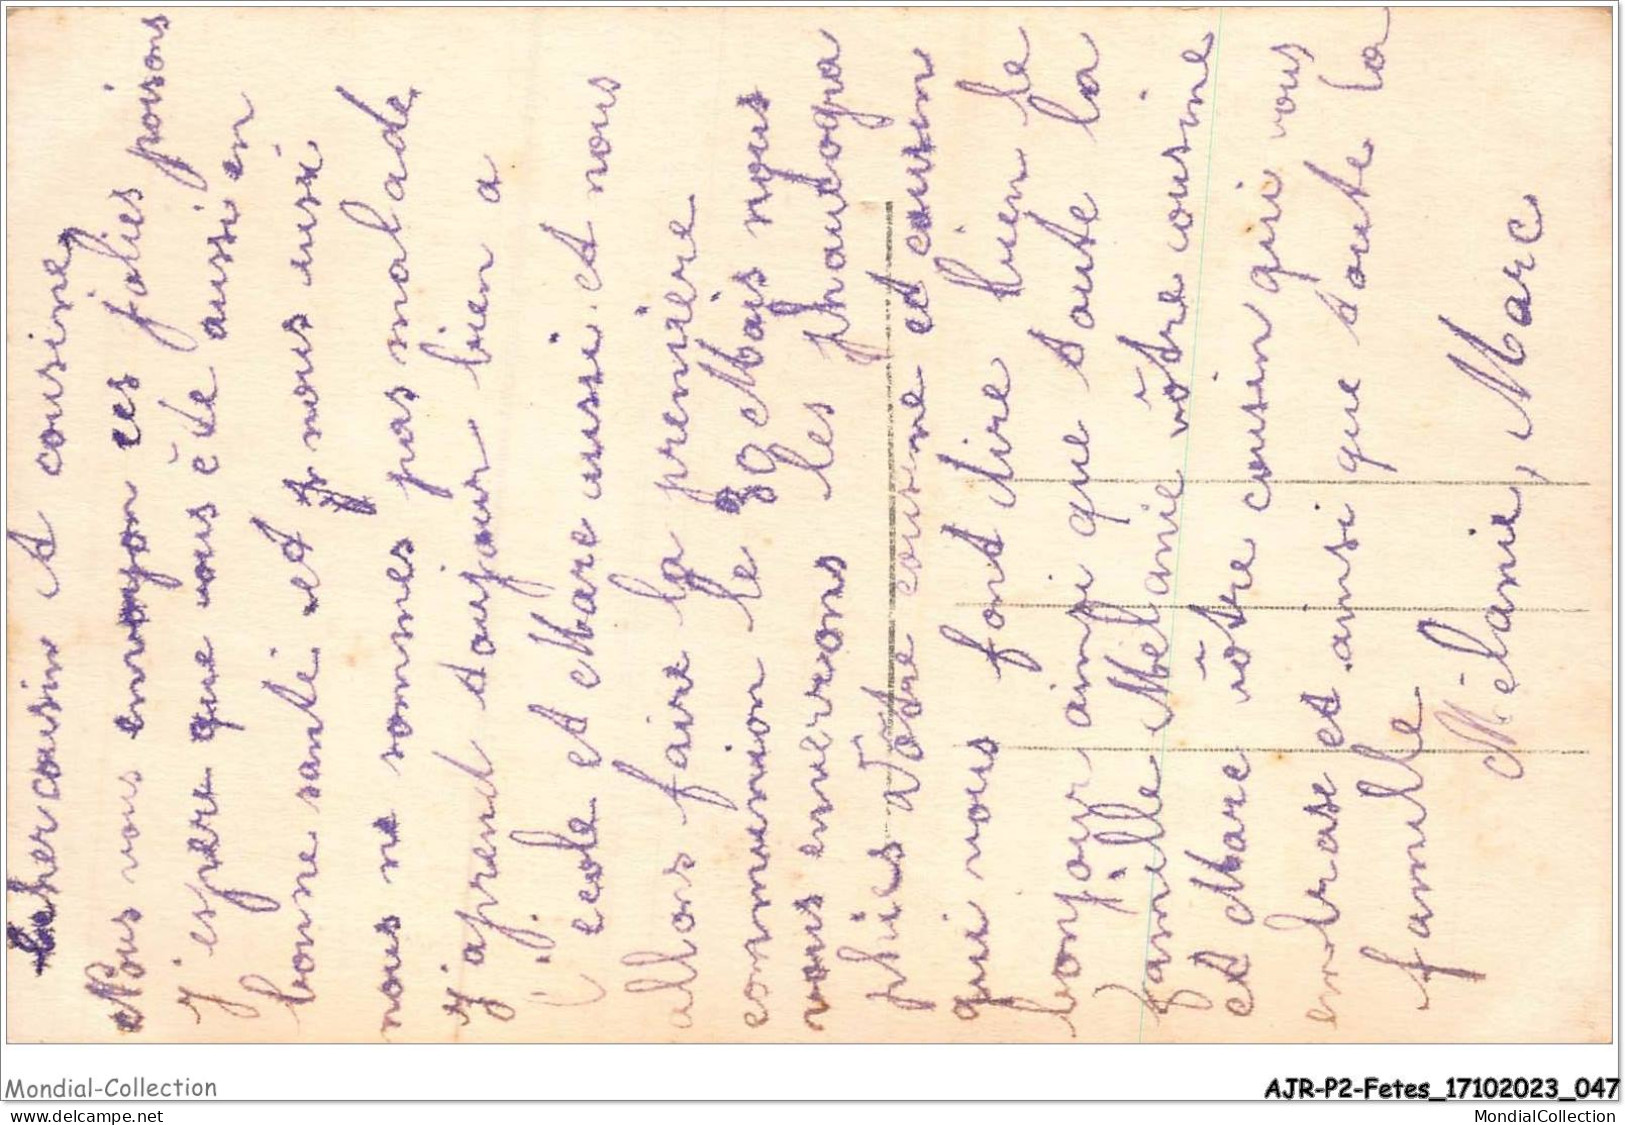 cher cousin et cousine
Nous vous envoyon ces jolies poisons
j'espere que vous ête aussi en
bonne santé et nous ausi
nous ne sommes pas malade
j'aprend toujour bien a
l'ecole et Marc aussi et nous
allons faire la premiere
communion le 39 Mais nous
vous enverrons les phautogra
phies Votre cousine et cousin
qui vous font dire bien le
bonjour ainsi que toute la
famille Mélanie vôtre cousine
et Marc vôtre cousin qui vous
embrase et ainsi que toute la
famille
Mélanie, Marc
Mondial-Collection
AJR-P2-Fetes_17102023_047
www.delcampe.net
MondialCollection